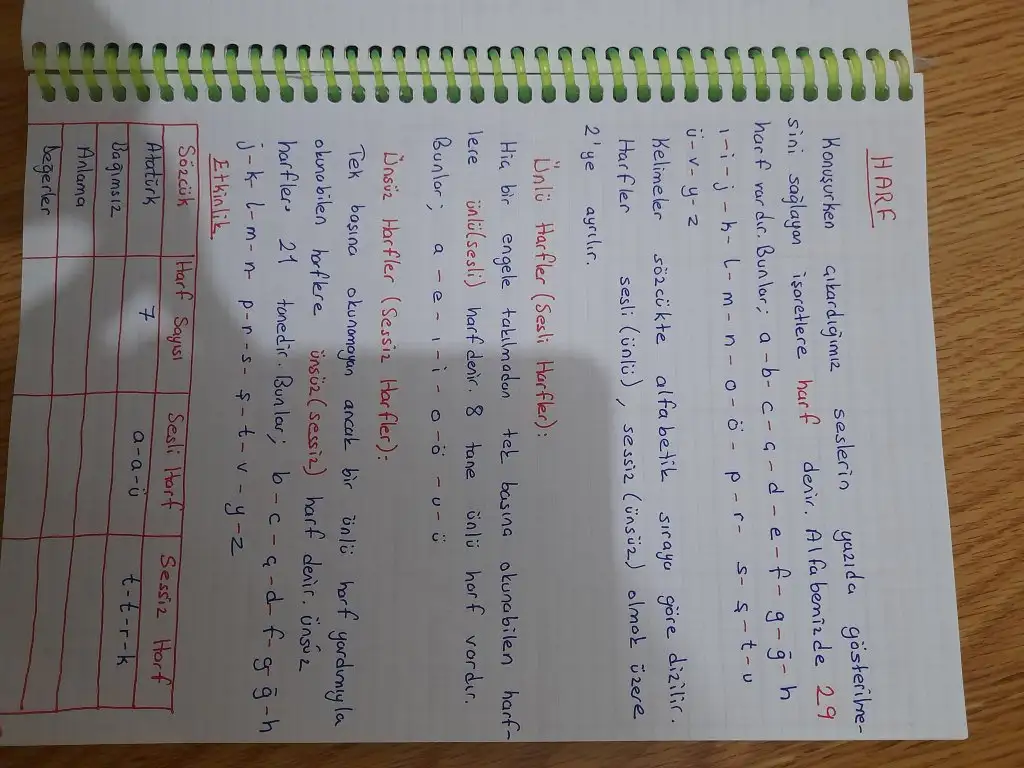 HARF
Konuşurken çıkardığımız seslerin yazıda gösterilme-
sini sağlayan işaretlere harf denir. Alfabemizde 29
harf vardır. Bunlar; a-b-c-ç-d-e-f-g-ğ-h
ı-i-j-k-l-m-n-o-ö-p-r-s-ş-t-u
ü-v-y-z
Kelimeler sözcükte alfabetik sıraya göre dizilir.
Harfler sesli (ünlü), sessiz (ünsüz) olmak üzere
2'ye ayrılır.
Ünlü Harfler (Sesli Harfler):
Hiç bir engele takılmadan tek başına okunabilen harf-
lere ünlü(sesli) harf denir. 8 tane ünlü harf vardır.
Bunlar; a-e-ı-i-o-ö-u-ü
Ünsüz Harfler (Sessiz Harfler):
Tek başına okunamayan ancak bir ünlü harf yardımıyla
okunabilen harflere ünsüz(sessiz) harf denir. ünsüz
harfler 21 tanedir. Bunlar; b-c-ç-d-f-g-ğ-h
j-k-l-m-n-p-r-s-ş-t-v-y-z
Etkinlik
Sözcük Harf Sayısı Sesli Harf Sessiz Harf
Atatürk 7 a-a-ü t-t-r-k
Bağımsız
Anlama
Değerler